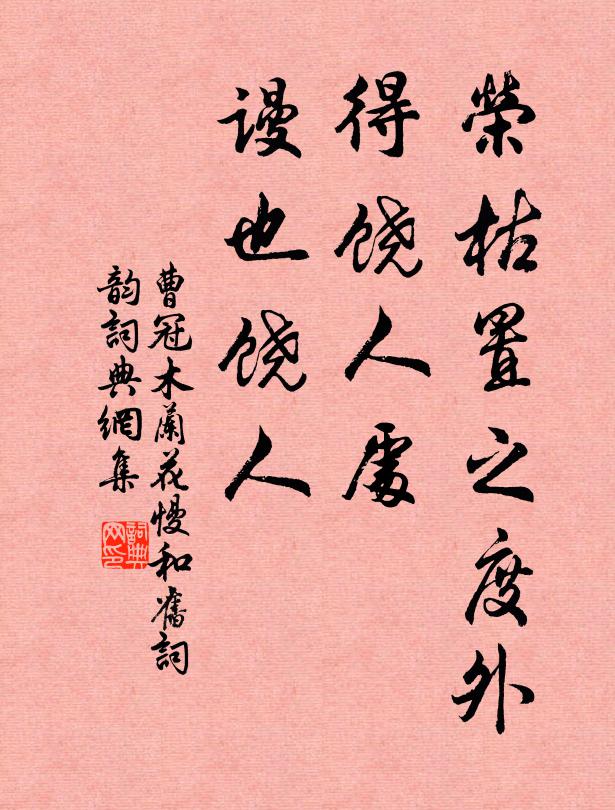 榮枯置之度外
得饶人處
謾也饶人
曹冠木蘭花慢和舊詞
韵詞典網集
詞典网印